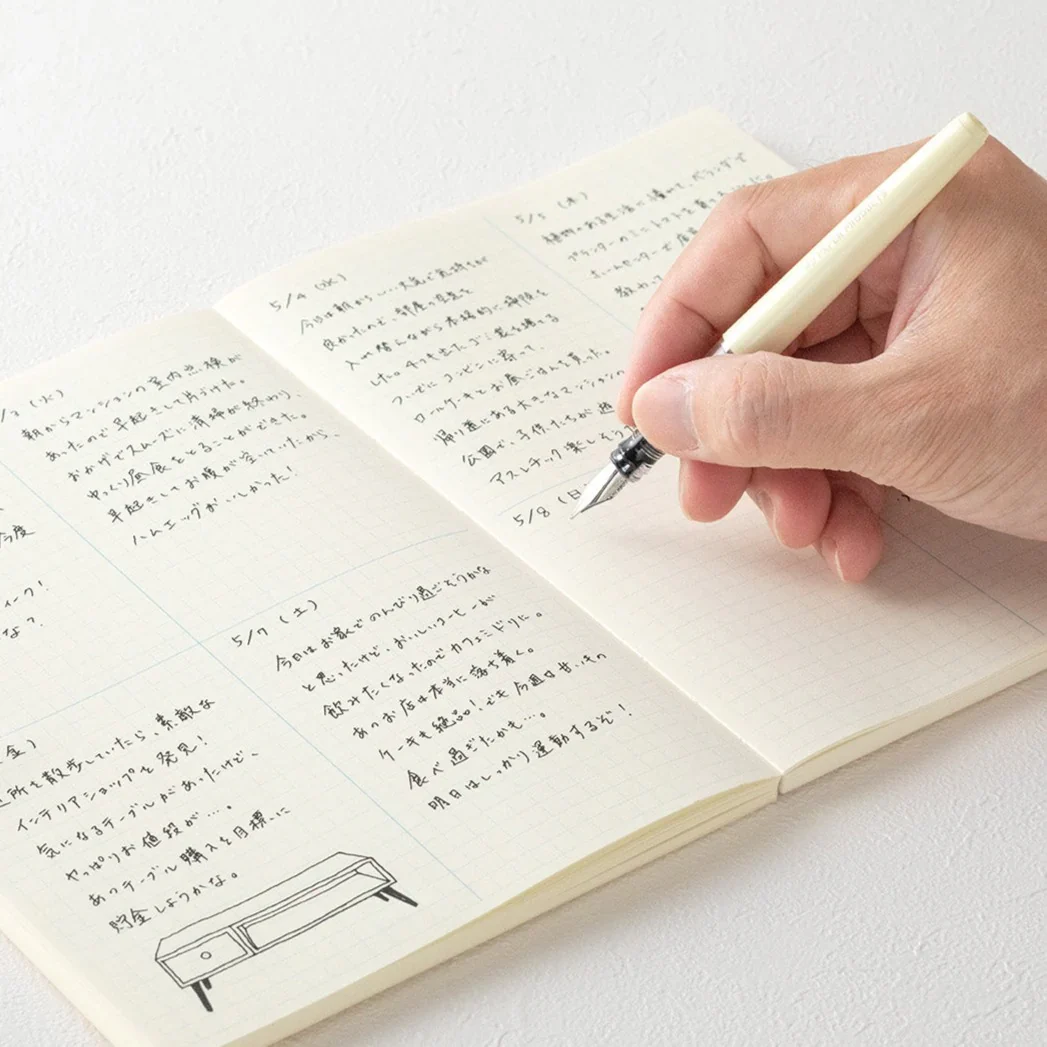 今度
ィーク!
な?
/3 (火)
朝からマンションの室内点検が
あったので早起きして片づけた。
おかげでスムーズに清掃が終わり、
ゆっくり昼食をとることができた。
早起きしてお腹が空いていたから、
ハムエッグがおいしかった!
金)
近所を散歩していたら、素敵な
インテリアショップを発見!
気になるテーブルがあったけど、
やっぱりお値段が…。
あのテーブル購入を目標に
貯金しようかな。
5/7 (土)
今日はお家でのんびり過ごそうかな
と思ったけど、おいしいコーヒーが
飲みたくなったのでカフェミドリに。
あのお店は本当に落ち着く。
ケーキも絶品!でも今週は甘いもの
食べ過ぎたかも…。
明日はしっかり運動するぞ!
5/4 (水)
今日は朝からいい天気で気持ちが
良かったので、部屋の空気を
入れ替えながら本格的に掃除を
した。4つも出たゴミ袋を捨てる
ついでにコンビニに寄って
ロールケーキとお昼ごはんを買った。
帰り道にある大きなマンションの
公園で、子供たちが遊
アスレチック楽しそう
5/5 (木)
植物のある生活に憧れて、ベランダで
プランターのミニトマトを
ホームセンターで店
教わ
5/8 (日